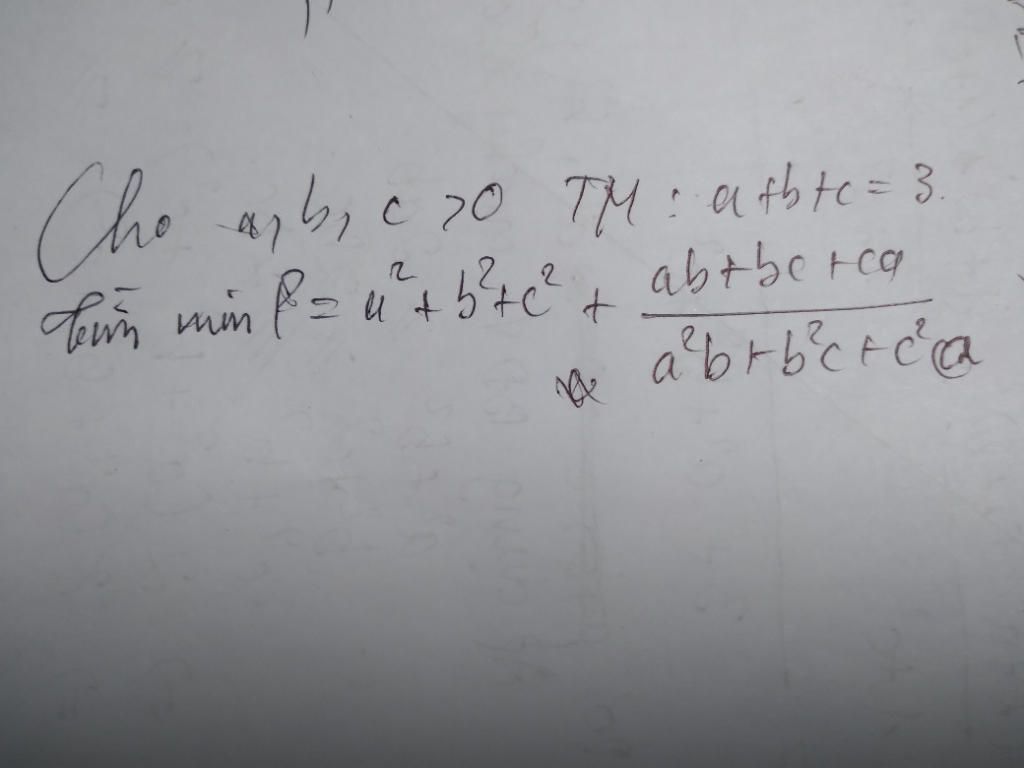 Cho a, b, c > 0 TM : a + b + c = 3.
tìm min P = a² + b² + c² + (ab + bc + ca)/(a²b + b²c + c²a)